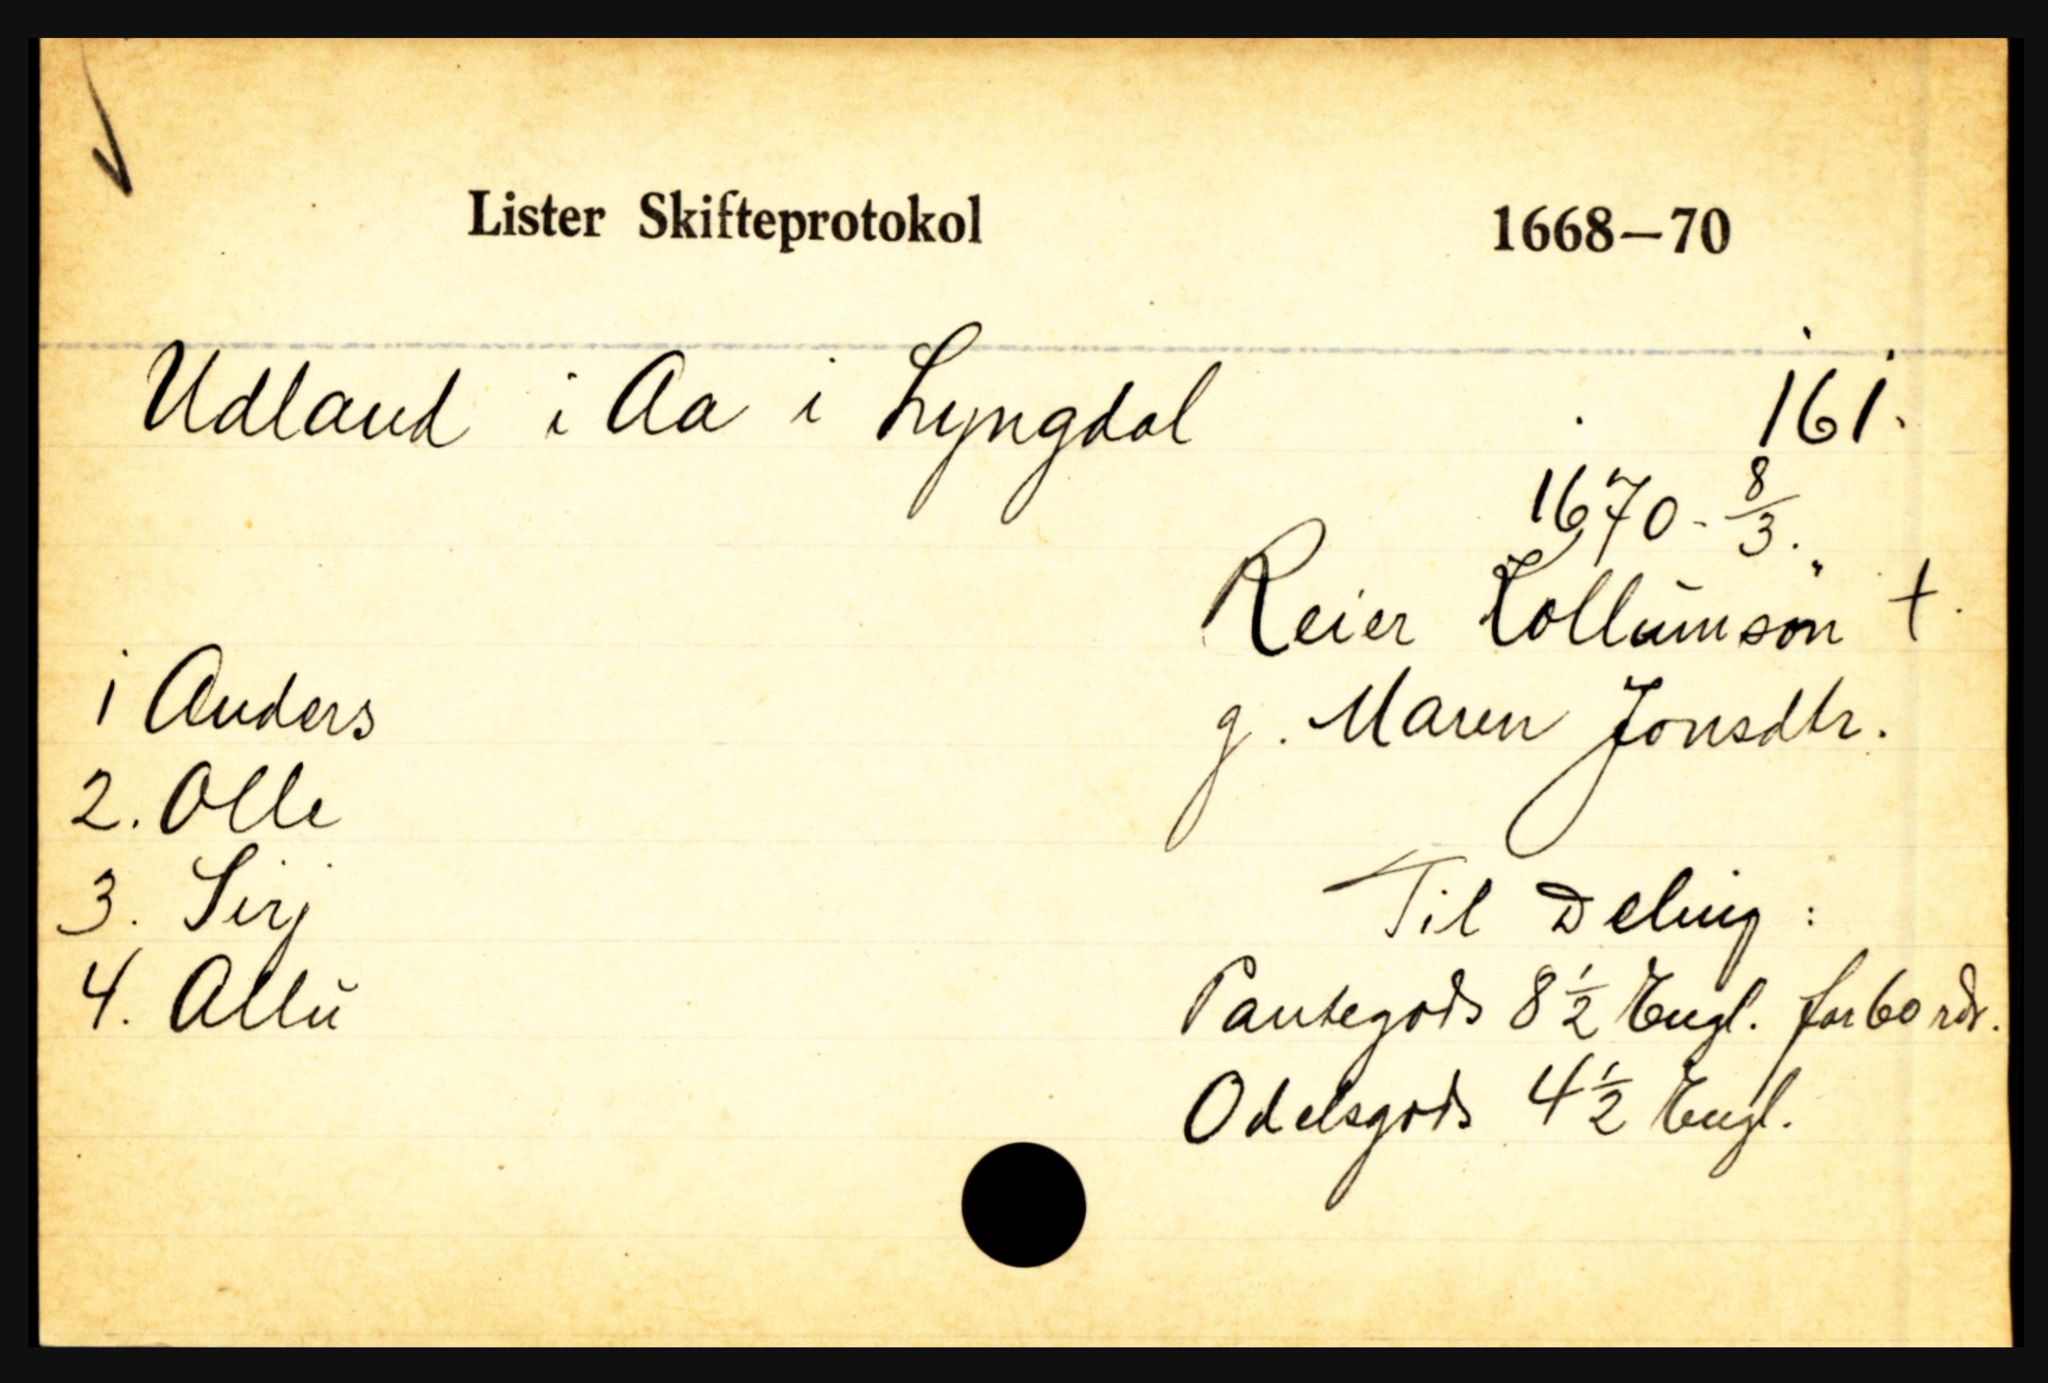 Lister Skifteprotokol 1668—70
Udland i Aa i Lyngdal 161.
1670 - 8/3.
Reier Tollumsön †.
g. Maren Jonsdtr.
1 Anders
2. Olle
3. Sirj
4. Allu
Til Deling :
Pantegods 8 1/2 Engl. for 60 rdr.
Odelsgods 4 1/2 Engl.